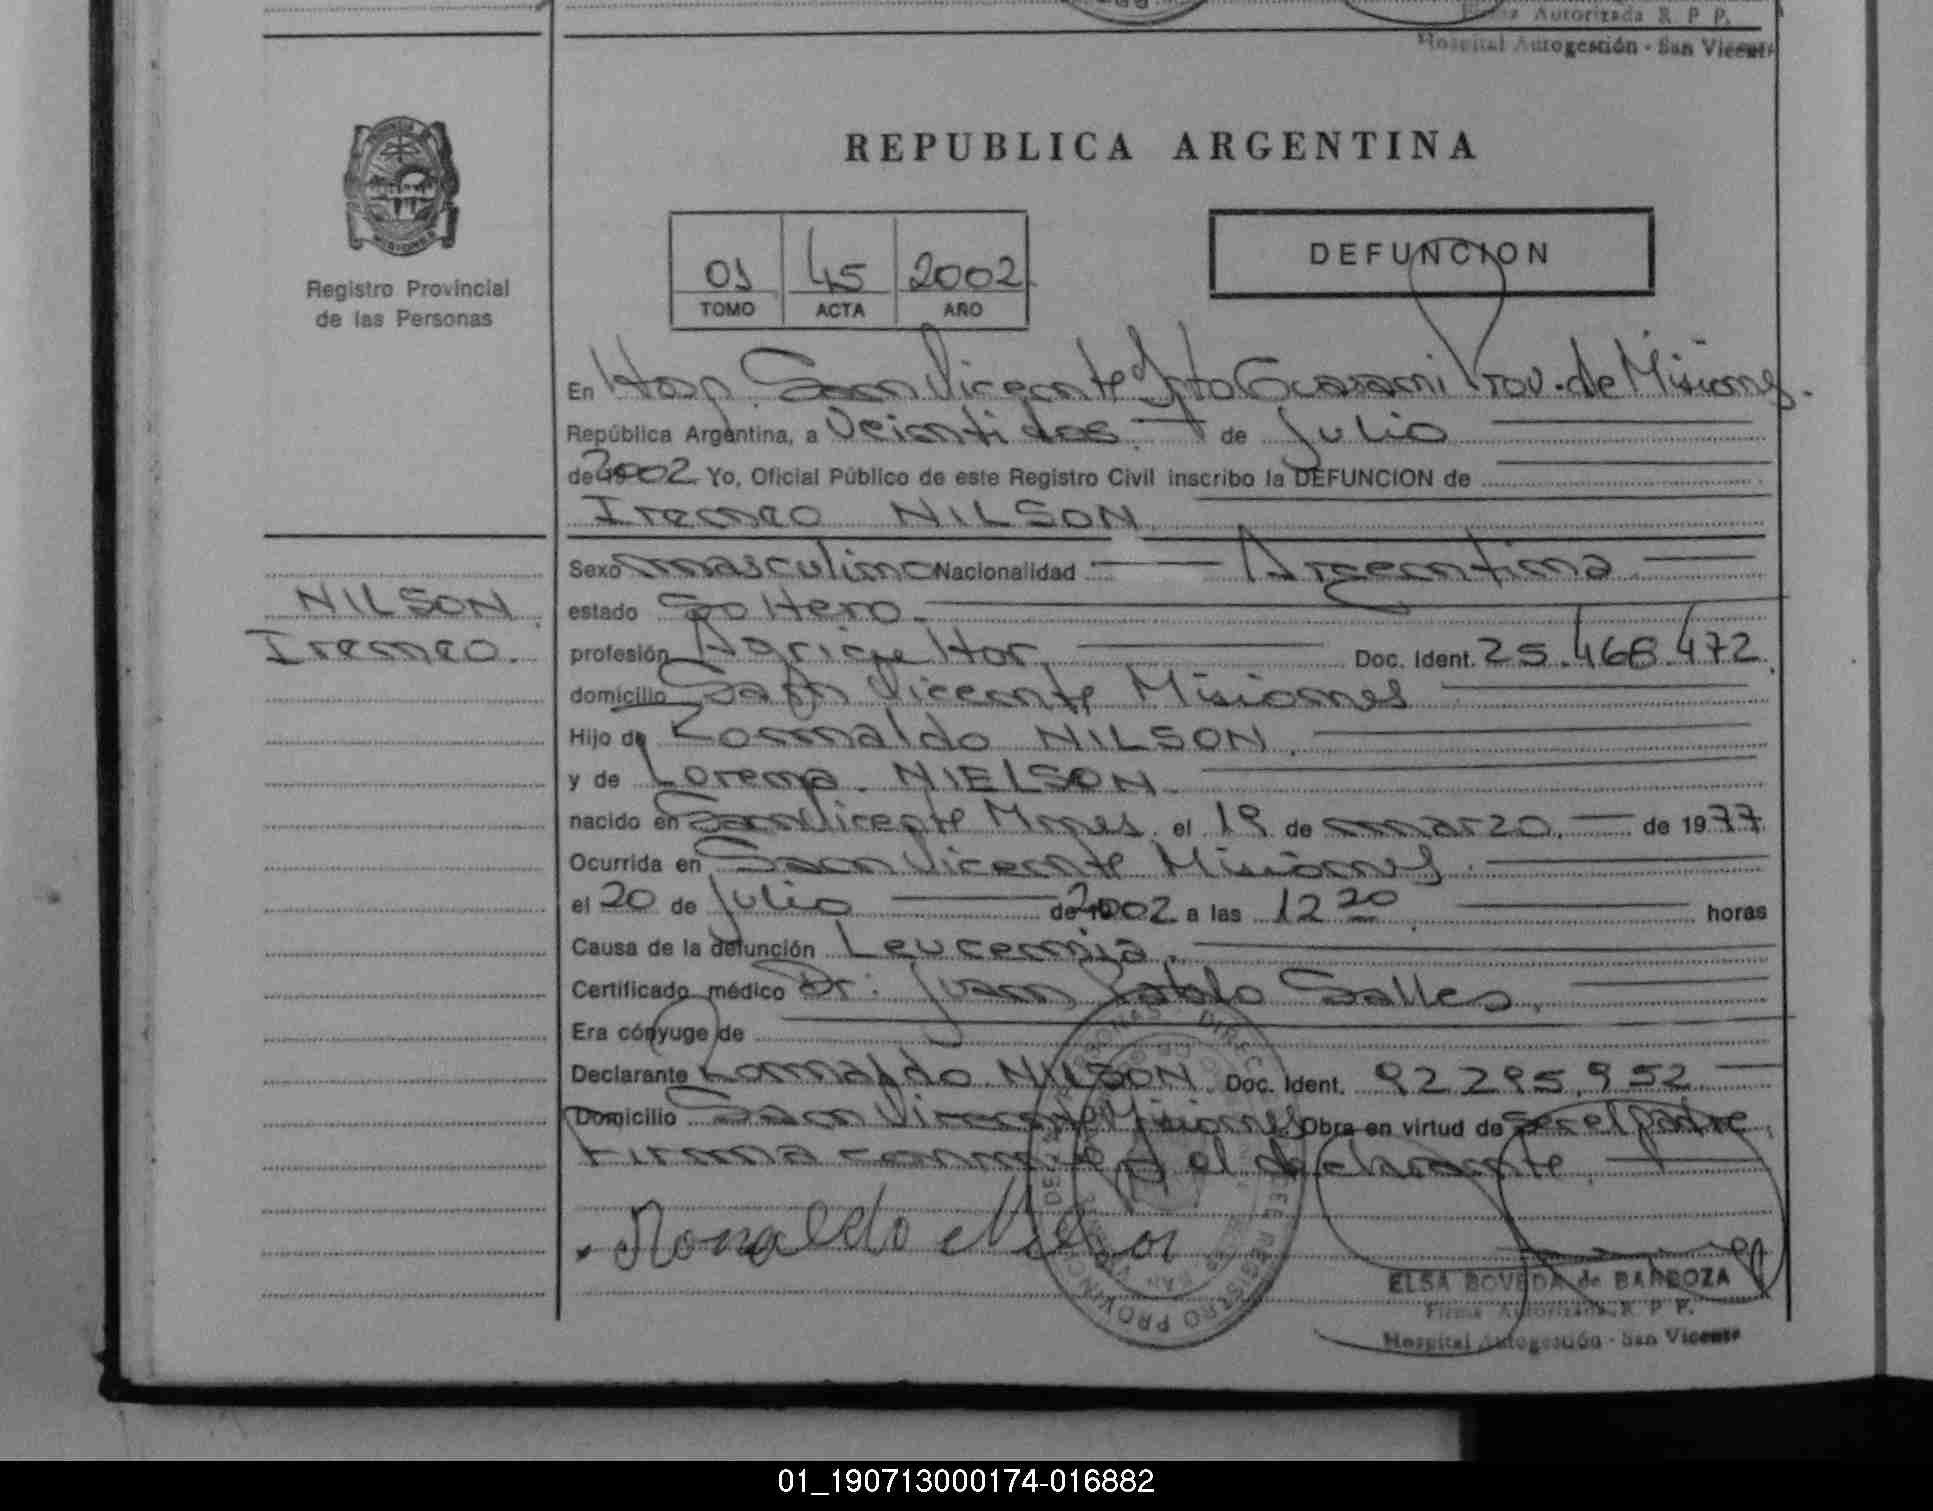 Firma Autorizada R P P.
Hospital Autogestión - San Vicente
MISIONES
Registro Provincial
de las Personas
REPUBLICA ARGENTINA
01 45 2002
TOMO ACTA AÑO
DEFUNCION
En Hosp. San Vicente Dpto Guarani Prov. de Misiones.
República Argentina, a Veintidos de Julio
de 2002 Yo, Oficial Público de este Registro Civil inscribo la DEFUNCION de
Ireneo NILSON
NILSON
Ireneo.
Sexo masculino Nacionalidad Argentina
estado Soltero
profesión Agricultor, Doc. Ident. 25.468.472
domicilio San Vicente Misiones
Hijo de Ronnaldo NILSON.
y de Lorena NIELSON.
nacido en San Vicente Mnes. el 19 de marzo de 1977
Ocurrida en San Vicente Misiones
el 20 de Julio de 2002 a las 12 20 horas
Causa de la defunción Leucemia.
Certificado médico Dr: Juan Pablo Salles,
Era cónyuge de
Declarante Ronnaldo NILSON Doc. Ident. 92295.952
Domicilio San Vicente Misiones Obra en virtud de ser el padre,
Firma conmigo el declarante
Ronaldo Nilson
ELSA BOVEDA de BARBOZA
Firma Autorizada R P P.
Hospital Autogestión - San Vicente
01_190713000174-016882